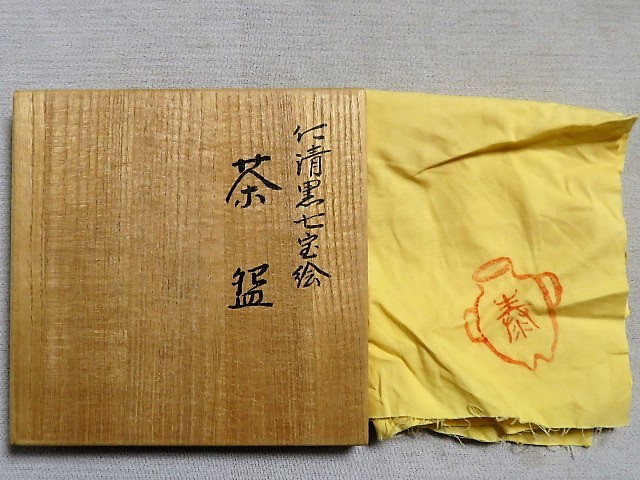 仁清黒七宝絵
茶盌
泰